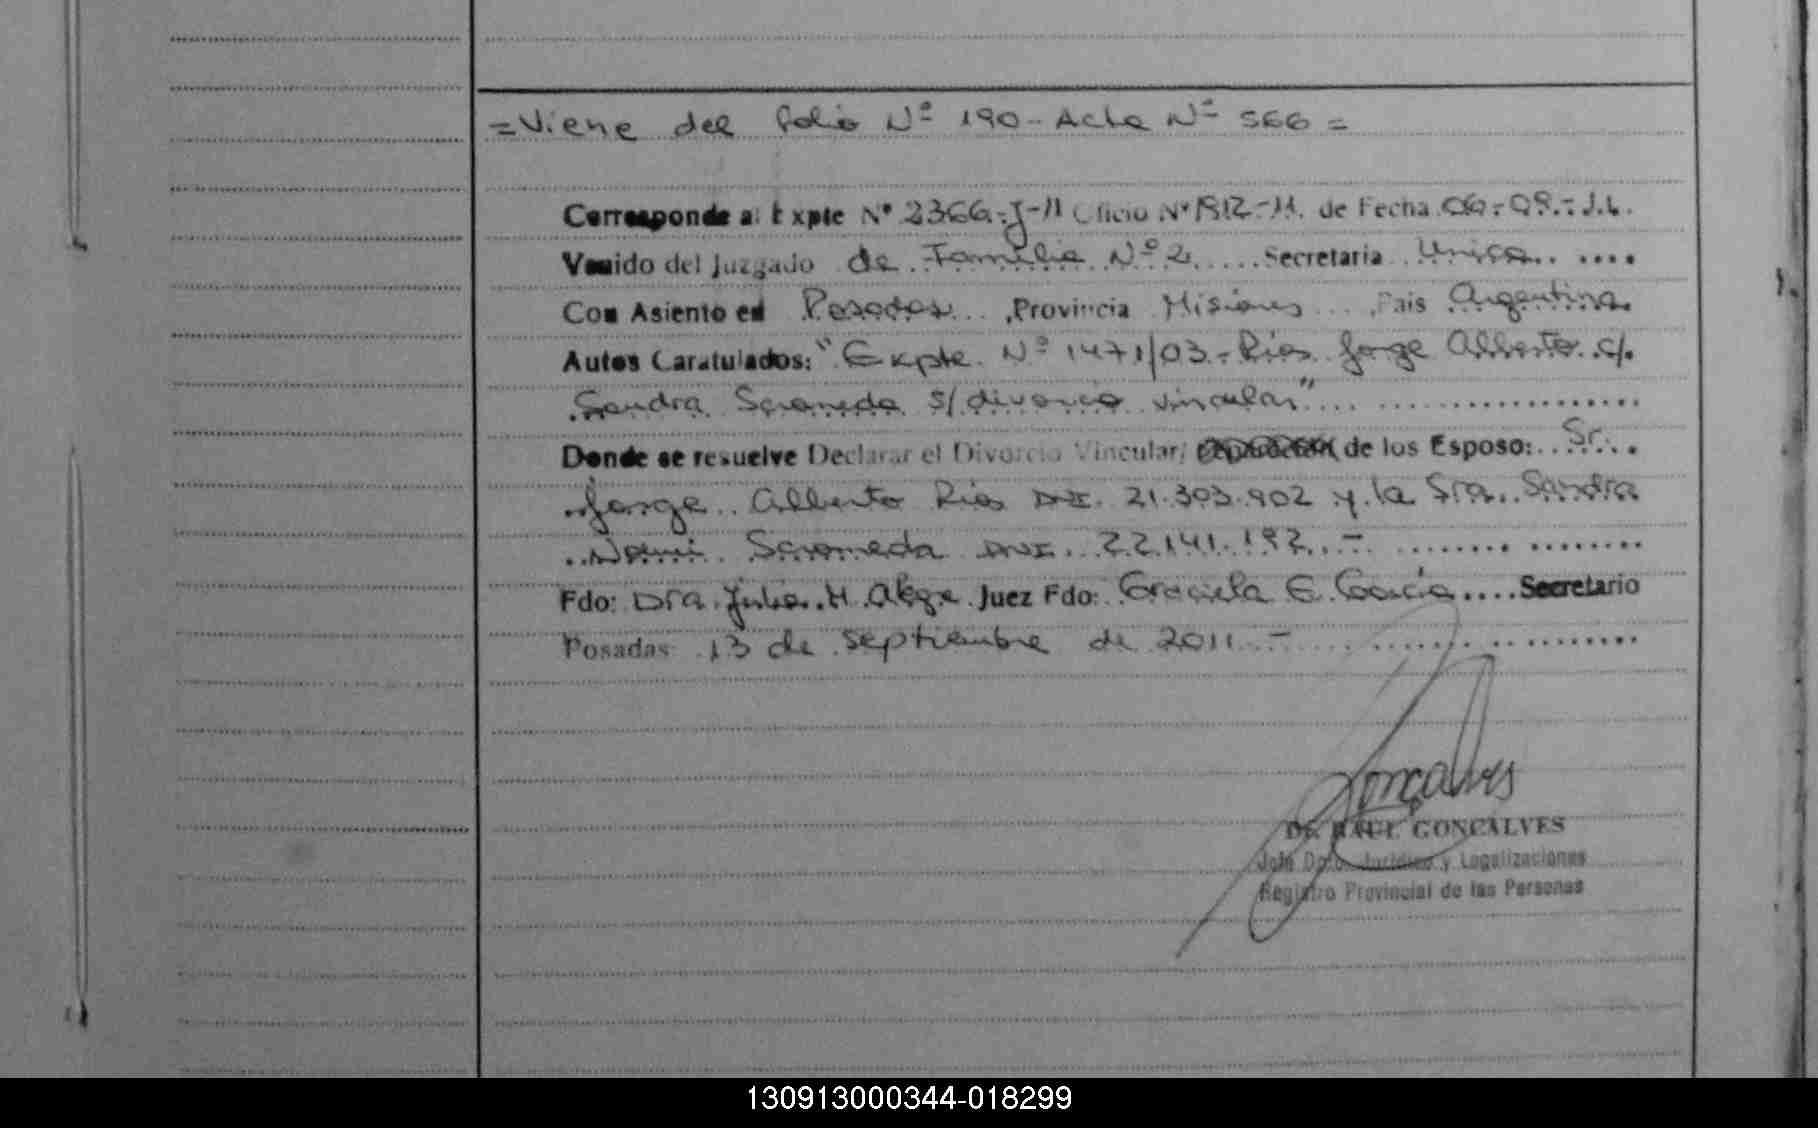 =Viene del folio Nº 190 - Acta Nº 566 =
Corresponde al Expte Nº 2366-J-11 Oficio Nº 1912-11. de Fecha 06-09-11.
Venido del Juzgado de Familia Nº 2 Secretaria Unica
Con Asiento en Posadas, Provincia Misiones, Pais Argentina
Autos Caratulados: "Expte. Nº 1471/03 - Rios Jorge Alberto c/
Sandra s/ divorcio vincular"
Donde se resuelve Declarar el Divorcio Vincular/ de los Esposo: Sr.
Jorge Alberto Rios DNI. 21.303.902 y la Sra. Sandra
Noemi DNI. 22.141.192. -
Fdo: Dra. Julia M. Alegre Juez Fdo: Graciela E. Garcia Secretario
Posadas 13 de septiembre de 2011 -
Goncalves
Dr. RAUL GONCALVES
Jefe Dpto. Juridico y Legalizaciones
Registro Provincial de las Personas
130913000344-018299